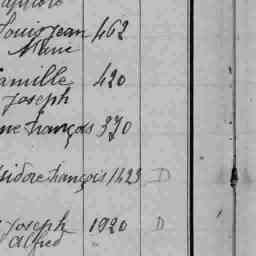 Louis Jean 462
Marie
Camille 420
Joseph
François 370
Isidore François 1423 D
Joseph 1920 D
Alfred "